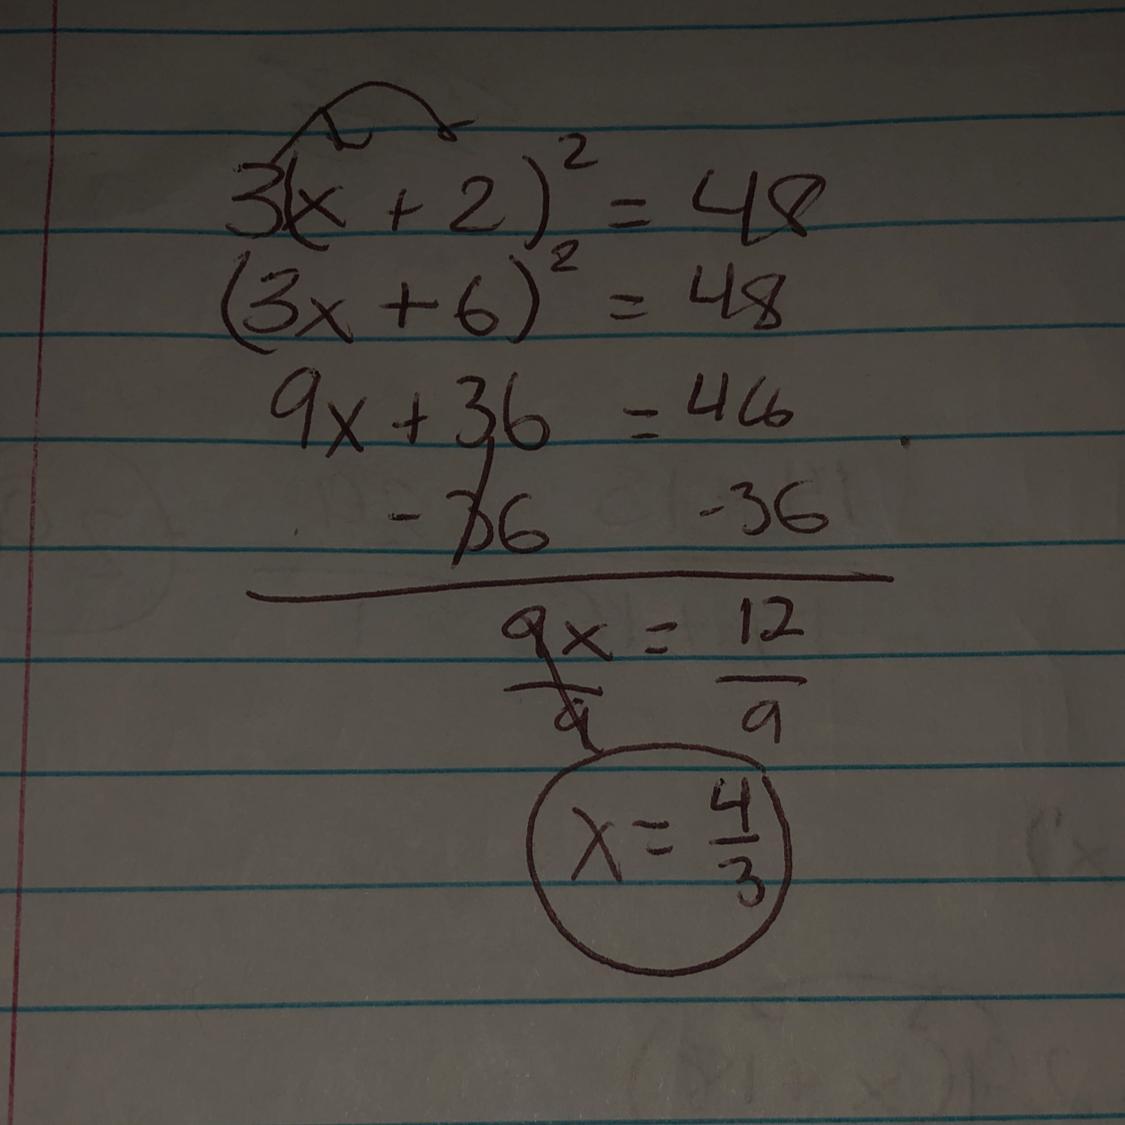 3(x + 2)² = 48
(3x + 6)² = 48
9x + 36 = 46
- 36 -36
9x = 12
9 9
x = 4/3